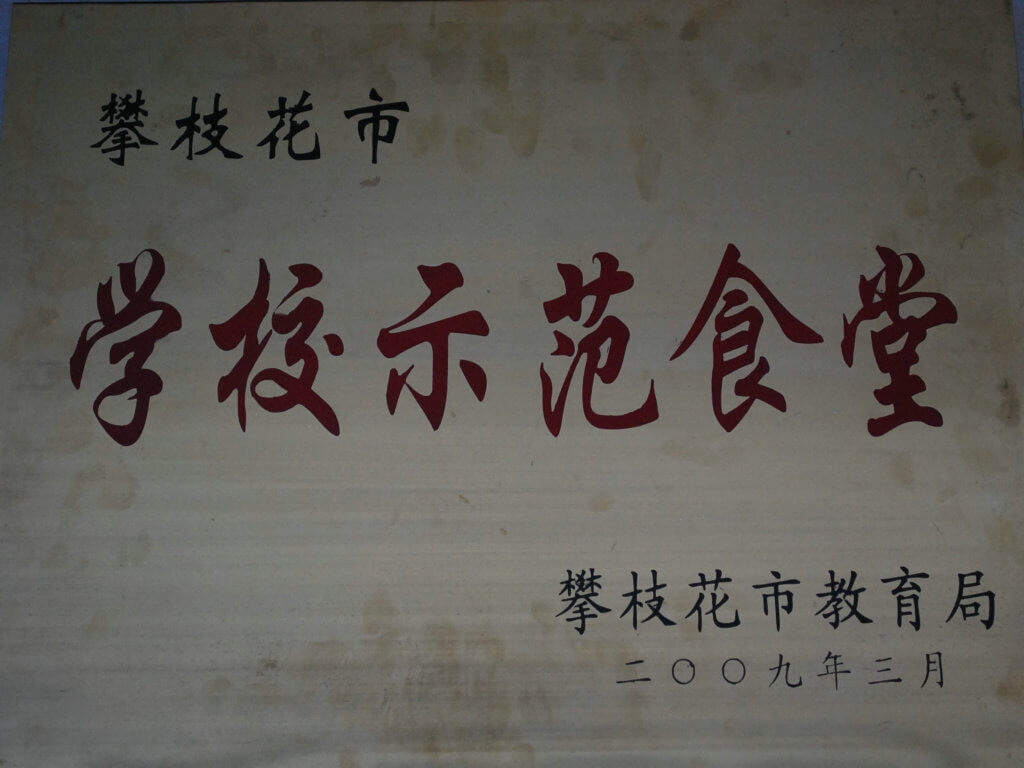 攀枝花市
学校示范食堂
攀枝花市教育局
二〇〇九年三月